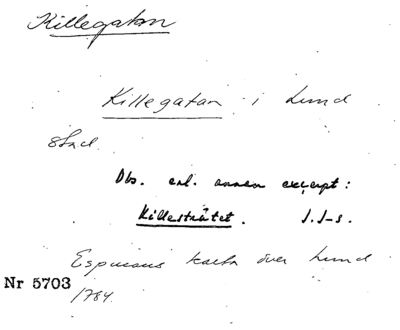 Killegatan
Killegatan i Lund
stad.
Obs. enl. annan excerpt:
Killesträtet. J.J-s.
Espmans karta över Lund
Nr 5703
1784.